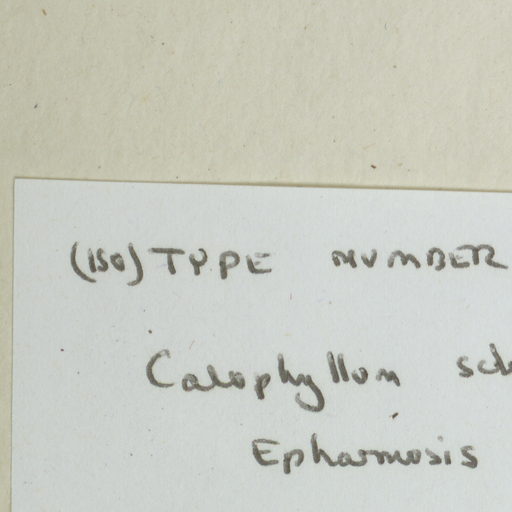 (ISO) TYPE NUMBER
Calophyllum
Epharmosis